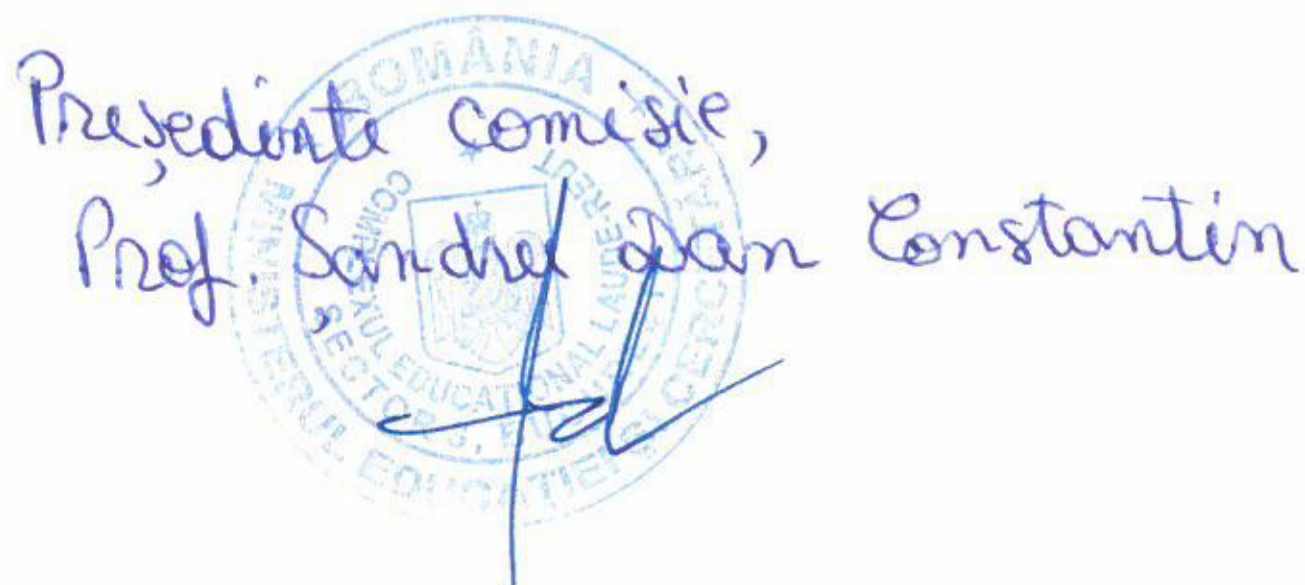 Președinte comisie,
Prof. Șandru Dan Constantin
ROMÂNIA
MINISTERUL EDUCAȚIEI ȘI CERCETĂRII
COMPLEXUL EDUCAȚIONAL LAUDE-REUT
SECTOR 3,